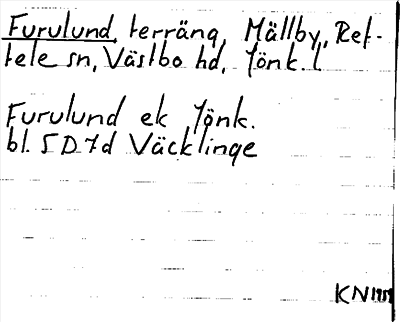 Furulund, terräng, Mällby, Ref-
tele sn, Västbo hd, Jönk. l
Furulund ek Jönk.
bl. 5D7d Väcklinge
KN